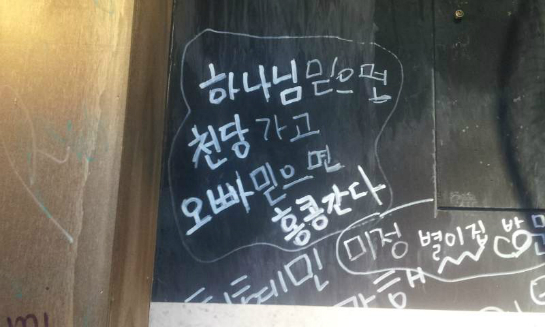 하나님 믿으면
천당 가고
오빠 믿으면
홍콩간다
미정 별이집 방문